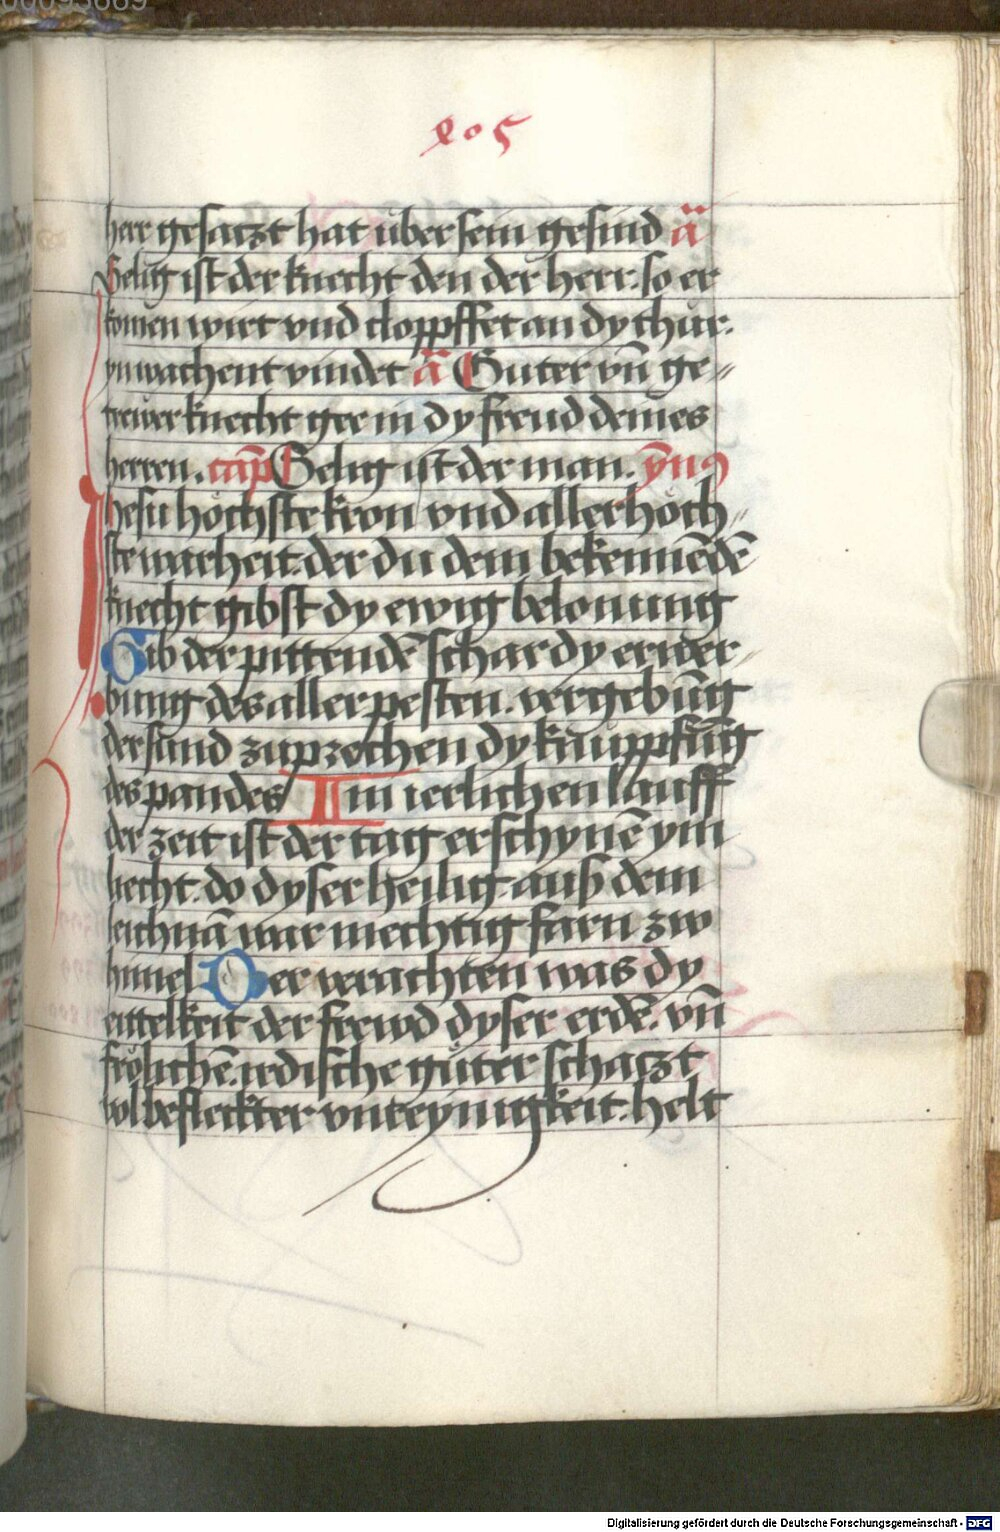 00093669
205
herr gesaczt hat uber sein gesind ä
Selig ist der knecht den der herr. so er
komen wirt vnd cloppffet an dy thür.
ynwachent vindet ä Guter vn̄ ge〃
trewer knecht gee in dy freud deines
herren. cap̄ Selig ist der man. ȳn9
Jhesu höchste kron vnd aller höch〃
ste warheit. der du dem bekennēdē
knecht gibst dy ewig belonung
Gib der pittendē schar dy erwer〃
bung des aller pesten. vergebūg
der sund zuprechen dy knuppfūg
des pandes Im ierlichen lauff
der zeit ist der tag erschynē ym
liecht. do dyser heilig auß dem
leichnā war mechtig farn zw
himel Der verachten was dy
eittelkeit der frewd dyser erdē. vn̄
frölichē. irdische güter schaczt
vol befleckter vnreynigkeit. helt
Digitalisierung gefördert durch die Deutsche Forschungsgemeinschaft - DFG